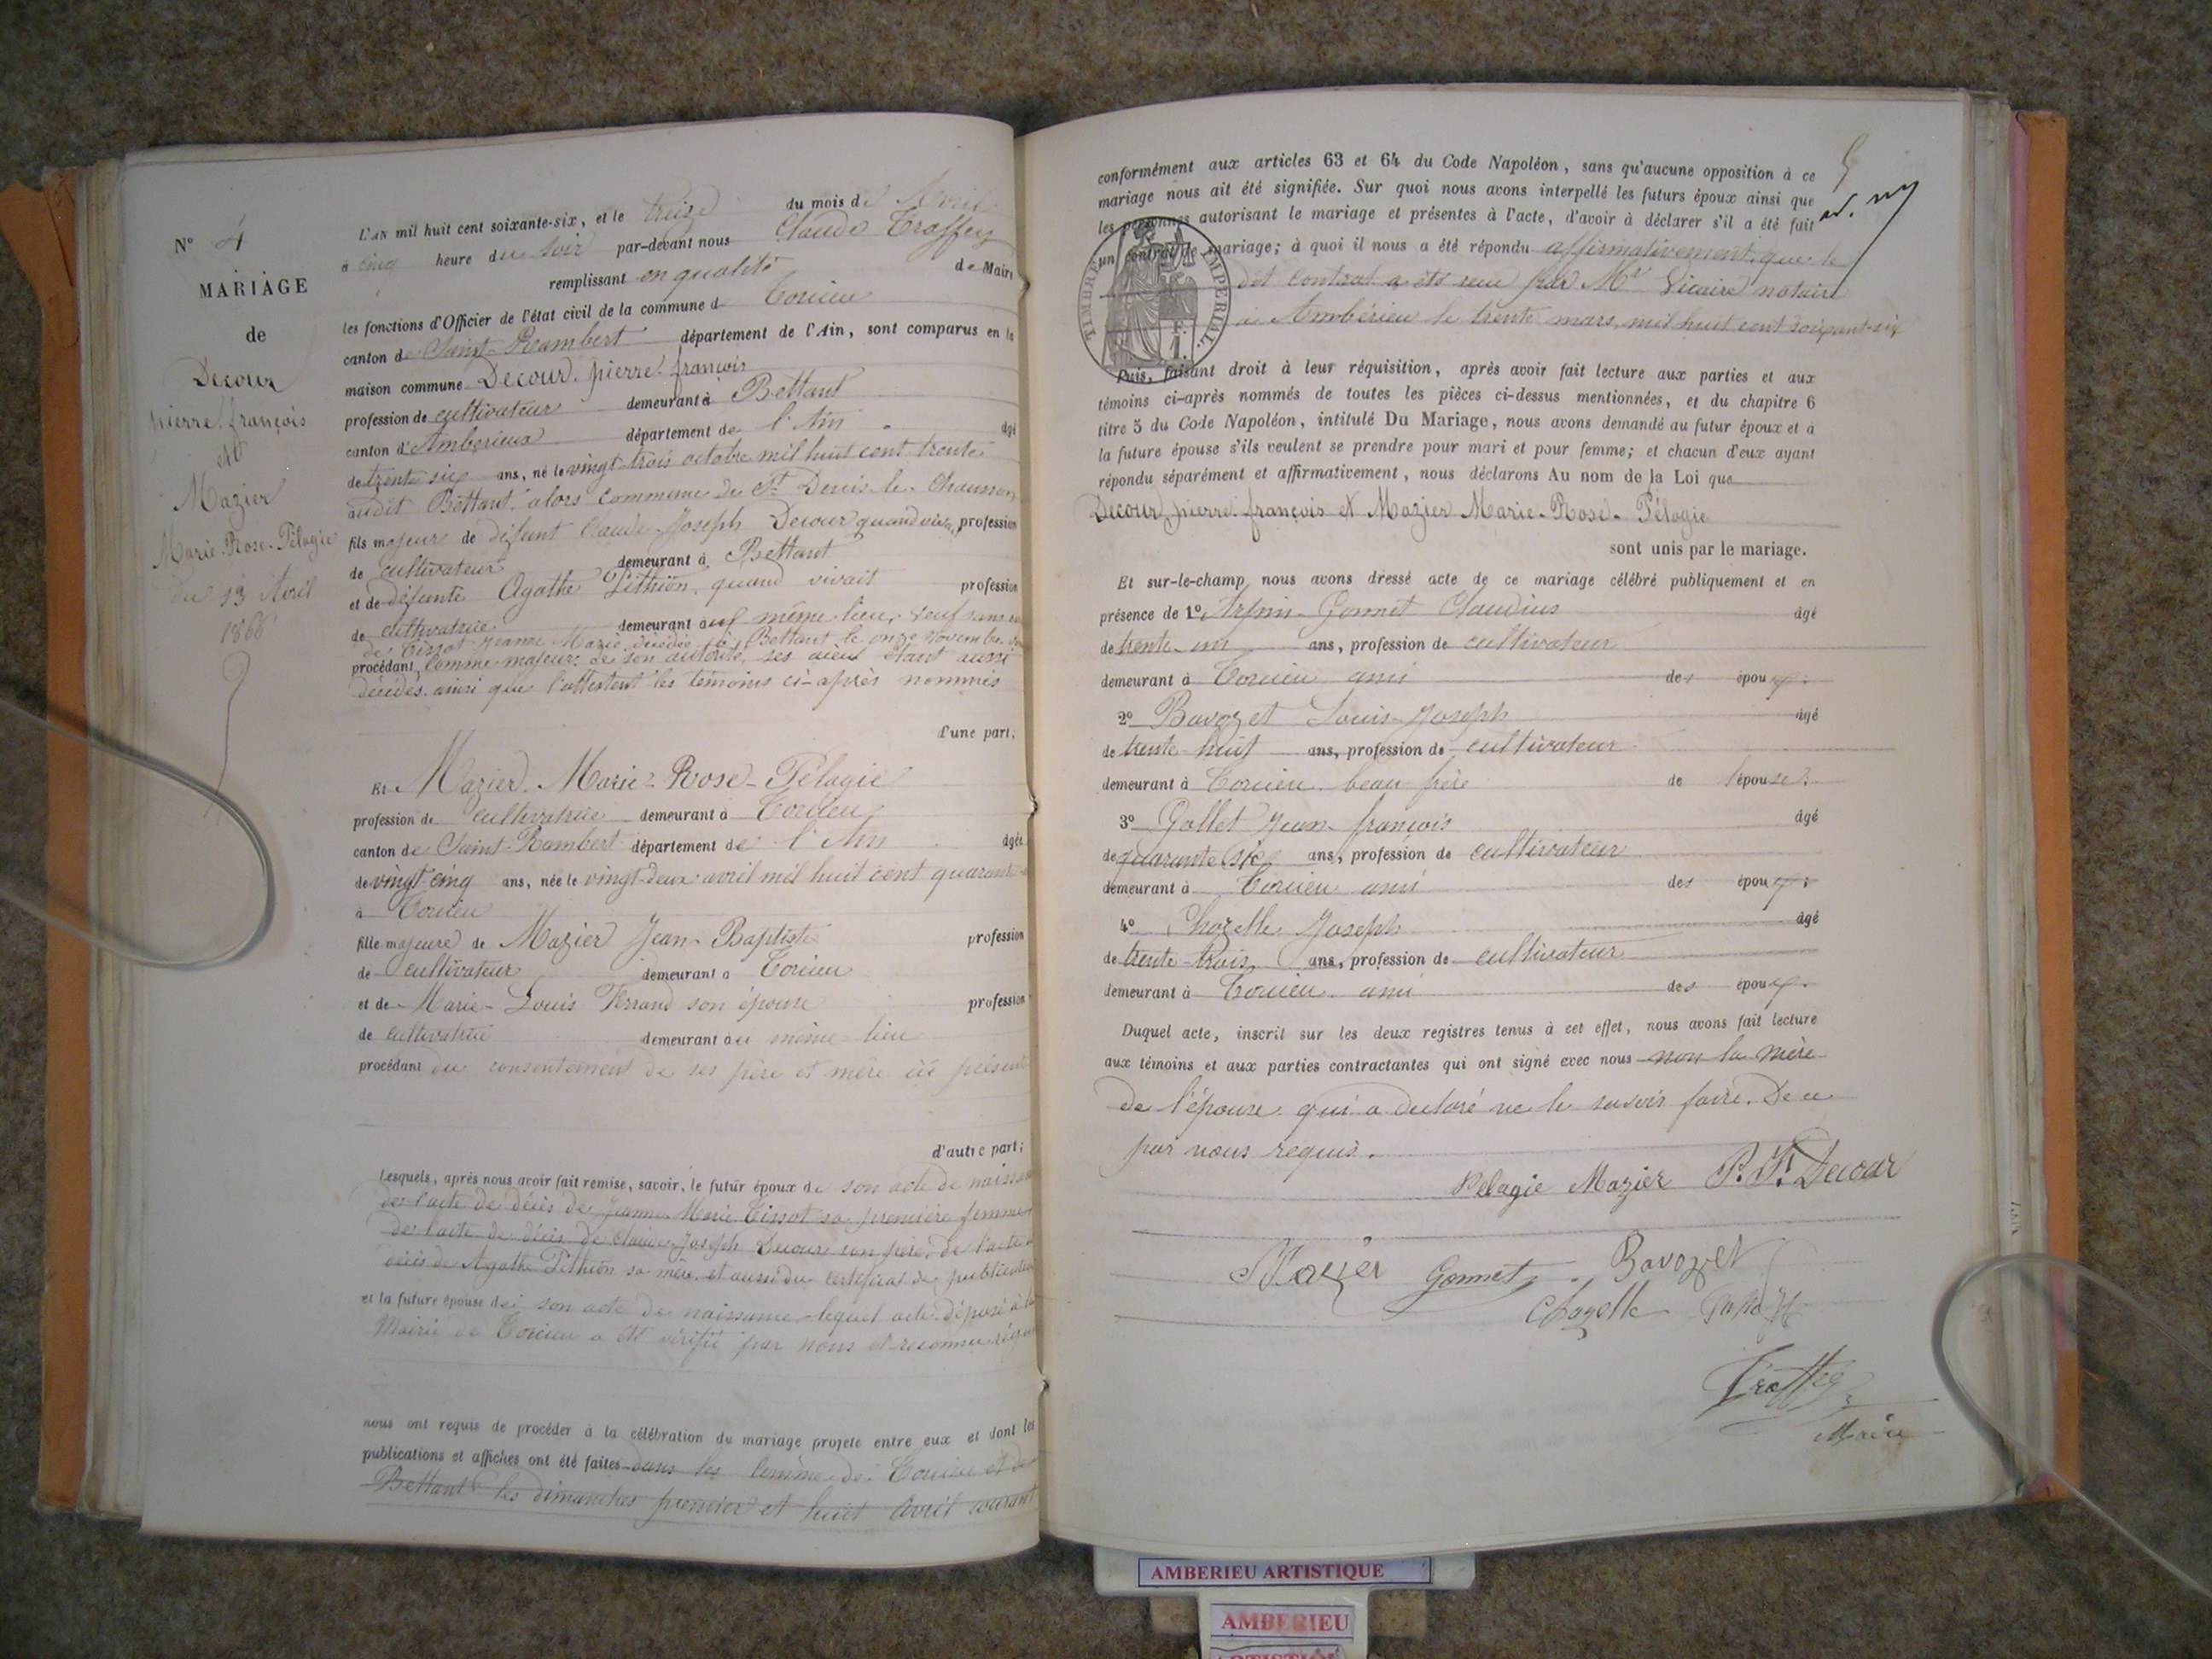 N° 4
MARIAGE
de
Decour
pierre françois
et
Mazier
Marie-Rose-Pélagie
du 13 Avril
1866
L'AN mil huit cent soixante-six, et le treize du mois d' Avril
à cinq heure du soir par-devant nous Claude Troffey
remplissant en qualité de Maire
les fonctions d'Officier de l'état civil de la commune de Torcieu
canton de Saint-Rambert département de l'Ain, sont comparus en la
maison commune Decour pierre françois
profession de cultivateur demeurant à Bettant
canton d'Ambérieux département de l'Ain âgé
de trente six ans, né le vingt trois octobre mil huit cent trente
audit Bettant alors commune de St Denis-le-Chausson
fils majeur de défunt Claude-Joseph Decour quand vivait profession
de cultivateur demeurant à Bettant
et de défunte Agathe Péthion quand vivait profession
de cultivatrice demeurant au même lieu, veuf sans
de Tissot Jeanne Marie décédée à Bettant le onze novembre
procédant comme majeur de son autorité, ses aïeux étant aussi
décédés ainsi que l'attestent les témoins ci-après nommés
d'une part;
Et Mazier Marie-Rose-Pélagie
profession de cultivatrice demeurant à Torcieu
canton de Saint-Rambert département de l'Ain âgée
de vingt-cinq ans, née le vingt-deux avril mil huit cent quarante
à Torcieu
fille majeure de Mazier Jean-Baptiste profession
de cultivateur demeurant à Torcieu
et de Marie-Louis Ferrand son épouse profession
de cultivatrice demeurant au même lieu
procédant du consentement de ses père et mère ici présents
d'autre part;
Lesquels, après nous avoir fait remise, savoir, le futur époux de son acte de naissance
de l'acte de décès de Jeanne-Marie Tissot sa première femme
de l'acte de décès de Claude-Joseph Decour son père, de l'acte de
décès de Agathe Péthion sa mère et aussi du certificat de publication
et la future épouse de son acte de naissance lequel acte déposé à la
Mairie de Torcieu a été vérifié par nous et reconnu
nous ont requis de procéder à la célébration du mariage projeté entre eux et dont les
publications et affiches ont été faites dans les comme de Torcieu et de
Bettant les dimanches premier et huit avril courant
conformément aux articles 63 et 64 du Code Napoléon, sans qu'aucune opposition à ce
mariage nous ait été signifiée. Sur quoi nous avons interpellé les futurs époux ainsi que
les personnes autorisant le mariage et présentes à l'acte, d'avoir à déclarer s'il a été fait
un contrat de mariage; à quoi il nous a été répondu affirmativement que le
dit contrat a été reçu par Me Vicaire notaire
à Ambérieu le trente mars mil huit cent soixante-six
TIMBRE IMPERIAL
1 F.
Puis, faisant droit à leur réquisition, après avoir fait lecture aux parties et aux
témoins ci-après nommés de toutes les pièces ci-dessus mentionnées, et du chapitre 6
titre 5 du Code Napoléon, intitulé Du Mariage, nous avons demandé au futur époux et à
la future épouse s'ils veulent se prendre pour mari et pour femme; et chacun d'eux ayant
répondu séparément et affirmativement, nous déclarons Au nom de la Loi que
Decour pierre françois et Mazier Marie-Rose-Pélagie
sont unis par le mariage.
Et sur-le-champ nous avons dressé acte de ce mariage célébré publiquement et en
présence de 1° Gonnet Claudius âgé
de trente-un ans, profession de cultivateur
demeurant à Torcieu ami des époux.
2° Bavozet Louis-Joseph âgé
de trente-huit ans, profession de cultivateur
demeurant à Torcieu beau frère de l'épouse.
3° Gallet Jean-françois âgé
de quarante six ans, profession de cultivateur
demeurant à Torcieu ami des époux.
4° Chazelle Joseph âgé
de trente-trois ans, profession de cultivateur
demeurant à Torcieu ami des époux.
Duquel acte, inscrit sur les deux registres tenus à cet effet, nous avons fait lecture
aux témoins et aux parties contractantes qui ont signé avec nous non la mère
de l'épouse qui a déclaré ne le savoir faire. De ce
par nous requis.
Pelagie Mazier P. F. Decour
Mazier Gonnet Bavozet
Chazelle
Troffey
Maire
AMBERIEU ARTISTIQUE
AMBERIEU
ARTISTIQUE